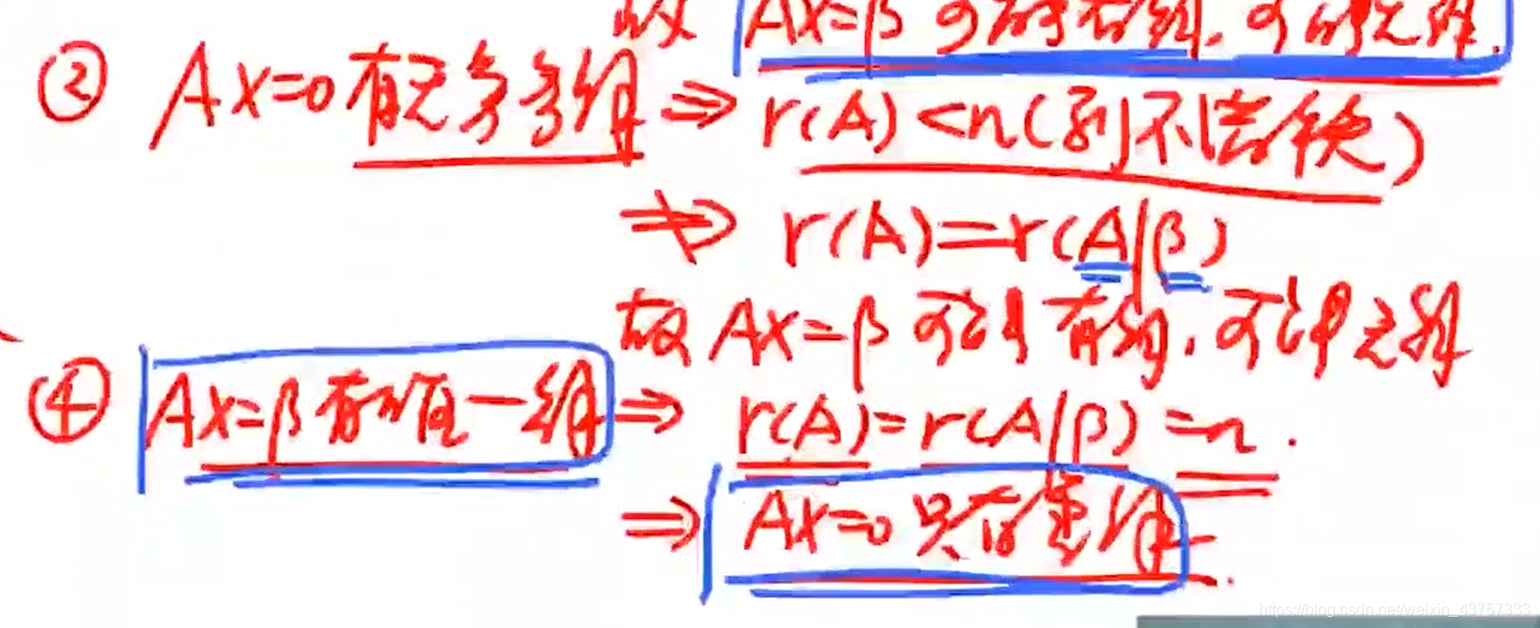 故 Ax=β 可能有解，可能无解．
② Ax=0 有无穷多解 ⇒ r(A)<n(列不满秩)
⇏ r(A)=r(A|β)
故 Ax=β 可能有解，可能无解
④ Ax=β 有唯一解 ⇒ r(A)=r(A|β)=n．
⇒ Ax=0 只有零解．
https://blog.csdn.net/weixin_43757333